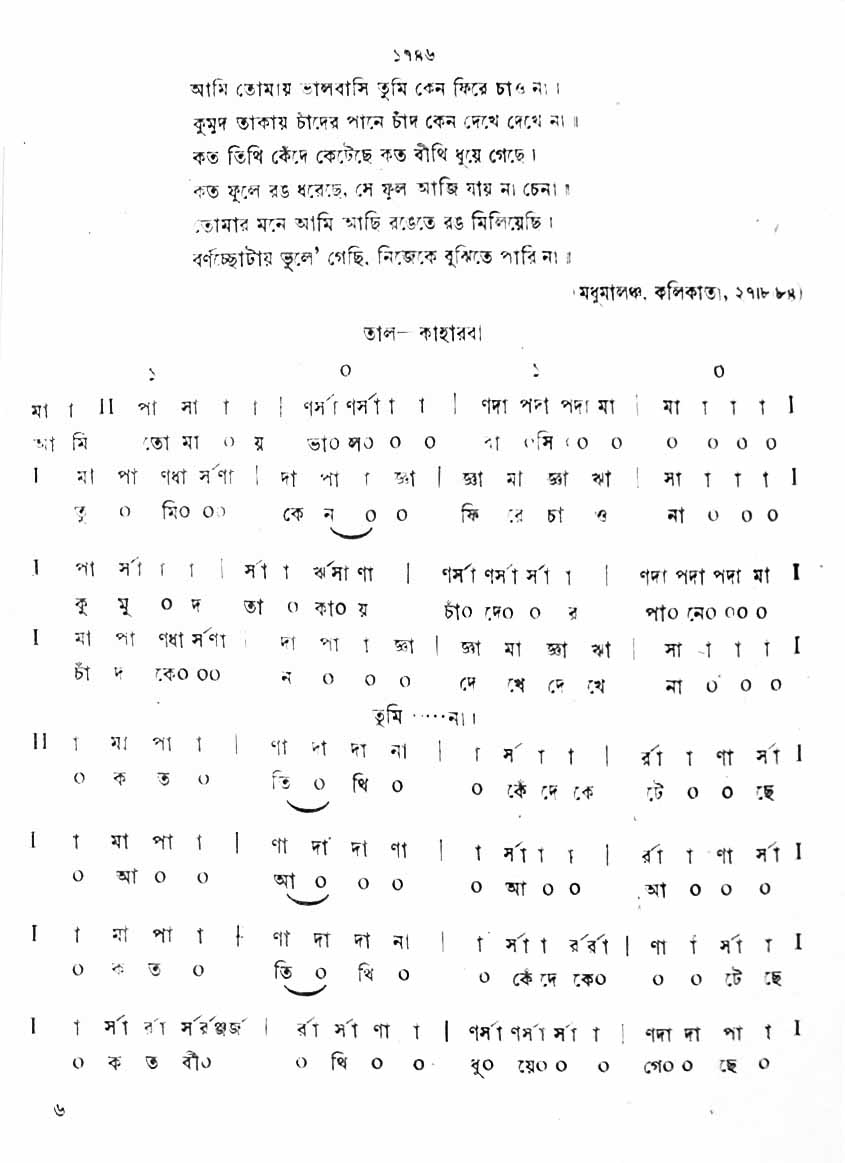 ১৭৪৬
আমি তোমায় ভালবাসি তুমি কেন ফিরে চাও না।
কুমুদ তাকায় চাঁদের পানে চাঁদ কেন দেখে দেখে না॥
কত তিথি কেঁদে কেটেছে কত বীথি ধুয়ে গেছে।
কত ফুলে রঙ ধরেছে, সে ফুল আজি যায় না চেনা॥
তোমার মনে আমি আছি রঙেতে রঙ মিলিয়েছি।
বর্ণচ্ছোটায় ভুলে' গেছি, নিজেকে বুঝিতে পারি না॥
(মধুমালঞ্চ, কলিকাতা, ২৭।৮ ৮৪)
তাল— কাহারবা
১ ০ ১ ০
মা া II পা সা া া | ণর্সা ণর্সা া া | ণদা পদা পদা মা | মা া া া I
আ মি তো মা ০ য় ভা০ ল০ ০ ০ বা ০সি ০ ০ ০ ০ ০ ০
I মা পা ণধা র্সণা | দা পা া জ্ঞা | জ্ঞা মা জ্ঞা ঋা | সা া া া I
তু ০ মি০ ০০ কে ন ০ ০ ফি রে চা ও না ০ ০ ০
I পা র্সা া া | র্সা া র্ঋসা ণা | ণর্সা ণর্সা র্সা া | ণদা পদা পদা মা I
কু মু ০ দ তা ০ কা০ য় চাঁ০ দে০ ০ র পা০ নে০ ০০ ০
I মা পা ণধা র্সণা | দা পা া জ্ঞা | জ্ঞা মা জ্ঞা ঋা | সা া া া I
চাঁ দ কে০ ০০ ন ০ ০ ০ দে খে দে খে না ০ ০ ০
তুমি ·····না।
II া মা পা া | ণা দা দা না | া র্সা া া | র্রা া ণা র্সা I
০ ক ত ০ তি ০ থি ০ ০ কেঁ দে কে টে ০ ০ ছে
I া মা পা া | ণা দা দা ণা | া র্সা া া | র্রা া ণা র্সা I
০ আ ০ ০ আ ০ ০ ০ ০ আ ০ ০ আ ০ ০ ০
I া মা পা া | ণা দা দা না | া র্সা া র্রর্রা | ণা া র্সা া I
০ ক ত ০ তি ০ থি ০ ০ কেঁ দে কে০ ০ ০ টে ছে
I া র্সা র্রা | র্রা র্সা ণা া | ণর্সা ণর্সা র্সা া | ণদা দা পা া I
০ ক ত বী০ ০ থি ০ ০ ধু০ য়ে০ ০ ০ গে০ ০ ছে ০
৬